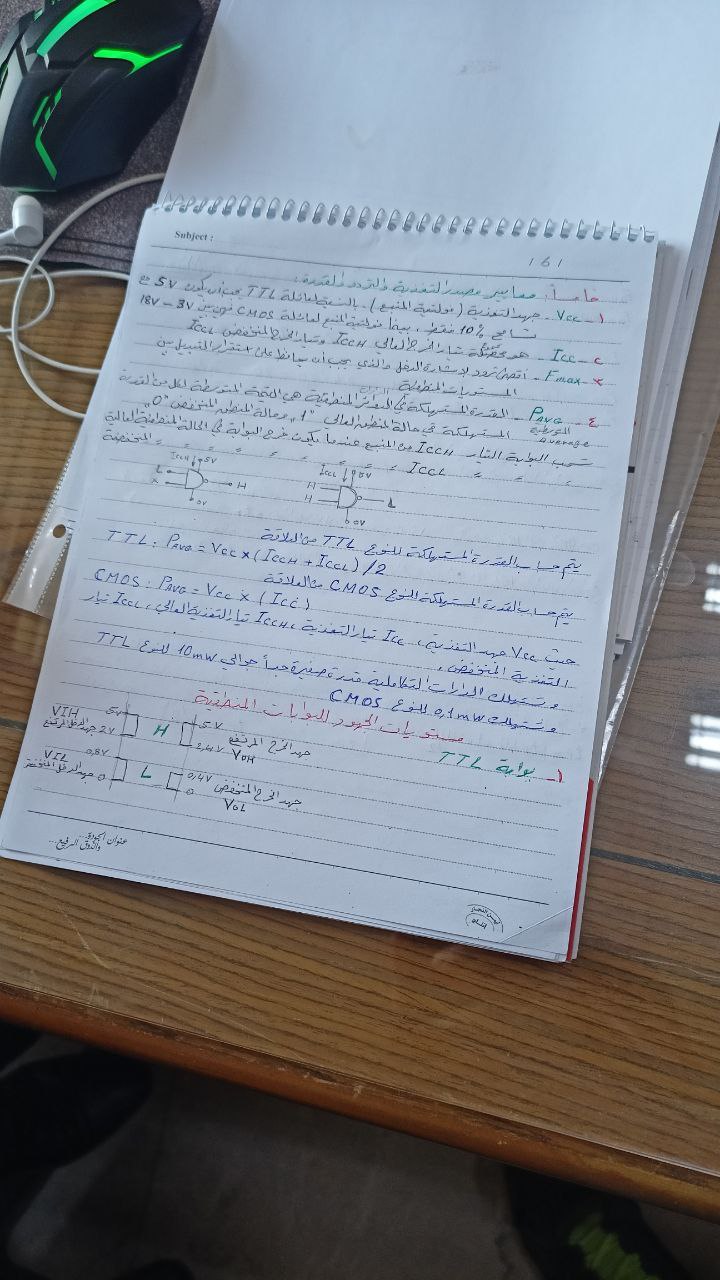 Subject :
/ 6 /
خامساً: معايير مصدر التغذية والتردد والقدرة:
١- Vcc - جهد التغذية (فولتية المنبع). بالنسبة لعائلة TTL يجب أن يكون 5V مع
تسامح 10% فقط. بينما فولتية المنبع لعائلة CMOS فهي بين 3V - 18V
٢- Icc - هو تيار الخرج العالي ICCH وتيار الخرج المنخفض ICCL
٣- Fmax - أقصى تردد لإشارة الدخل والذي يجب أن يحافظ على استقرار التبديل بين
المستويات المنطقية
٤- PAVG - القدرة المستهلكة في الدوائر المنطقية هي القيمة المتوسطة لكل من القدرة
المتوسطة Average المستهلكة في حالة المنطق العالي "1" وحالة المنطق المنخفض "0"
تسحب البوابة التيار ICCH من المنبع عندما يكون خرج البوابة في الحالة المنطقية العالية
〃 〃 〃 ICCL 〃 〃 〃 〃 〃 〃 〃 المنخفضة
ICCH 5V
L
X
H
0V
ICCL 5V
H
H
L
0V
يتم حساب القدرة المستهلكة للنوع TTL من العلاقة
TTL : PAVG = Vcc × (ICCH + ICCL) / 2
يتم حساب القدرة المستهلكة للنوع CMOS من العلاقة
CMOS : PAVG = Vcc × (Icc)
حيث Vcc جهد التغذية، Icc تيار التغذية، ICCH تيار التغذية العالي، ICCL تيار
التغذية المنخفض.
وتستهلك الدارات التكاملية قدرة صغيرة جداً حوالي 10mW للنوع TTL
وتستهلك 0,1mW للنوع CMOS
مستويات الجهود للبوابات المنطقية
١- بوابة TTL
VIH
جهد الدخل المرتفع
5V
2V
H
5V
2,4V
جهد الخرج المرتفع
VOH
VIL
جهد الدخل المنخفض
0,8V
0
L
0,4V
0
جهد الخرج المنخفض
VOL
عنوان الجودة..
والذوق الرفيع..